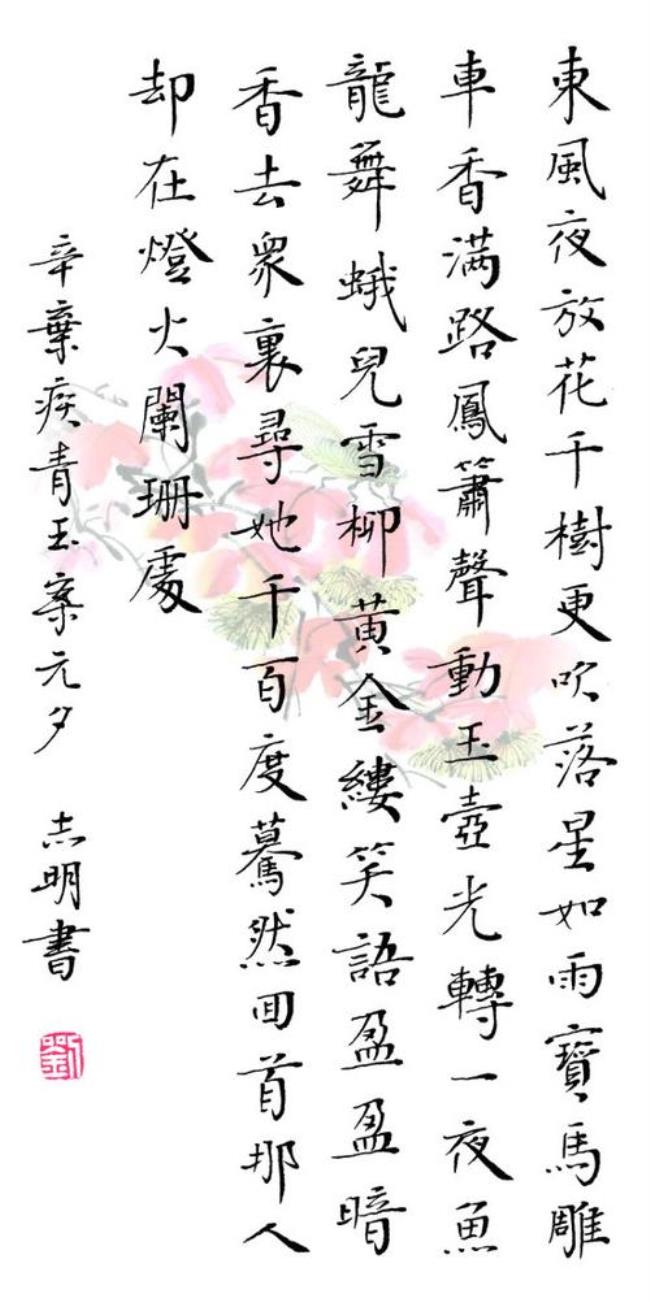 東風夜放花千樹更吹落星如雨寶馬雕
車香滿路鳳簫聲動玉壺光轉一夜魚
龍舞蛾兒雪柳黃金縷笑語盈盈暗
香去衆裏尋她千百度驀然回首那人
却在燈火闌珊處
辛棄疾青玉案元夕 志明書
劉